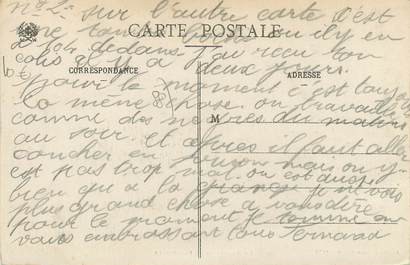 n° 2 - sur l'autre carte c'est
CARTE POSTALE
une tombe boche ou il y en
204 dedans j'ai reçu ton
colis il y a deux jours.
CORRESPONDANCE
ADRESSE
pour le moment c'est toujours
la même chose on travaille
comme des nègres du matin
M
au soir. et après il faut aller
coucher en mais on y
est pas trop mal on est aussi
bien qu'a la grange je ne vois
plus grand chose a vous dire
pour le moment je termine en
vous embrassant tous